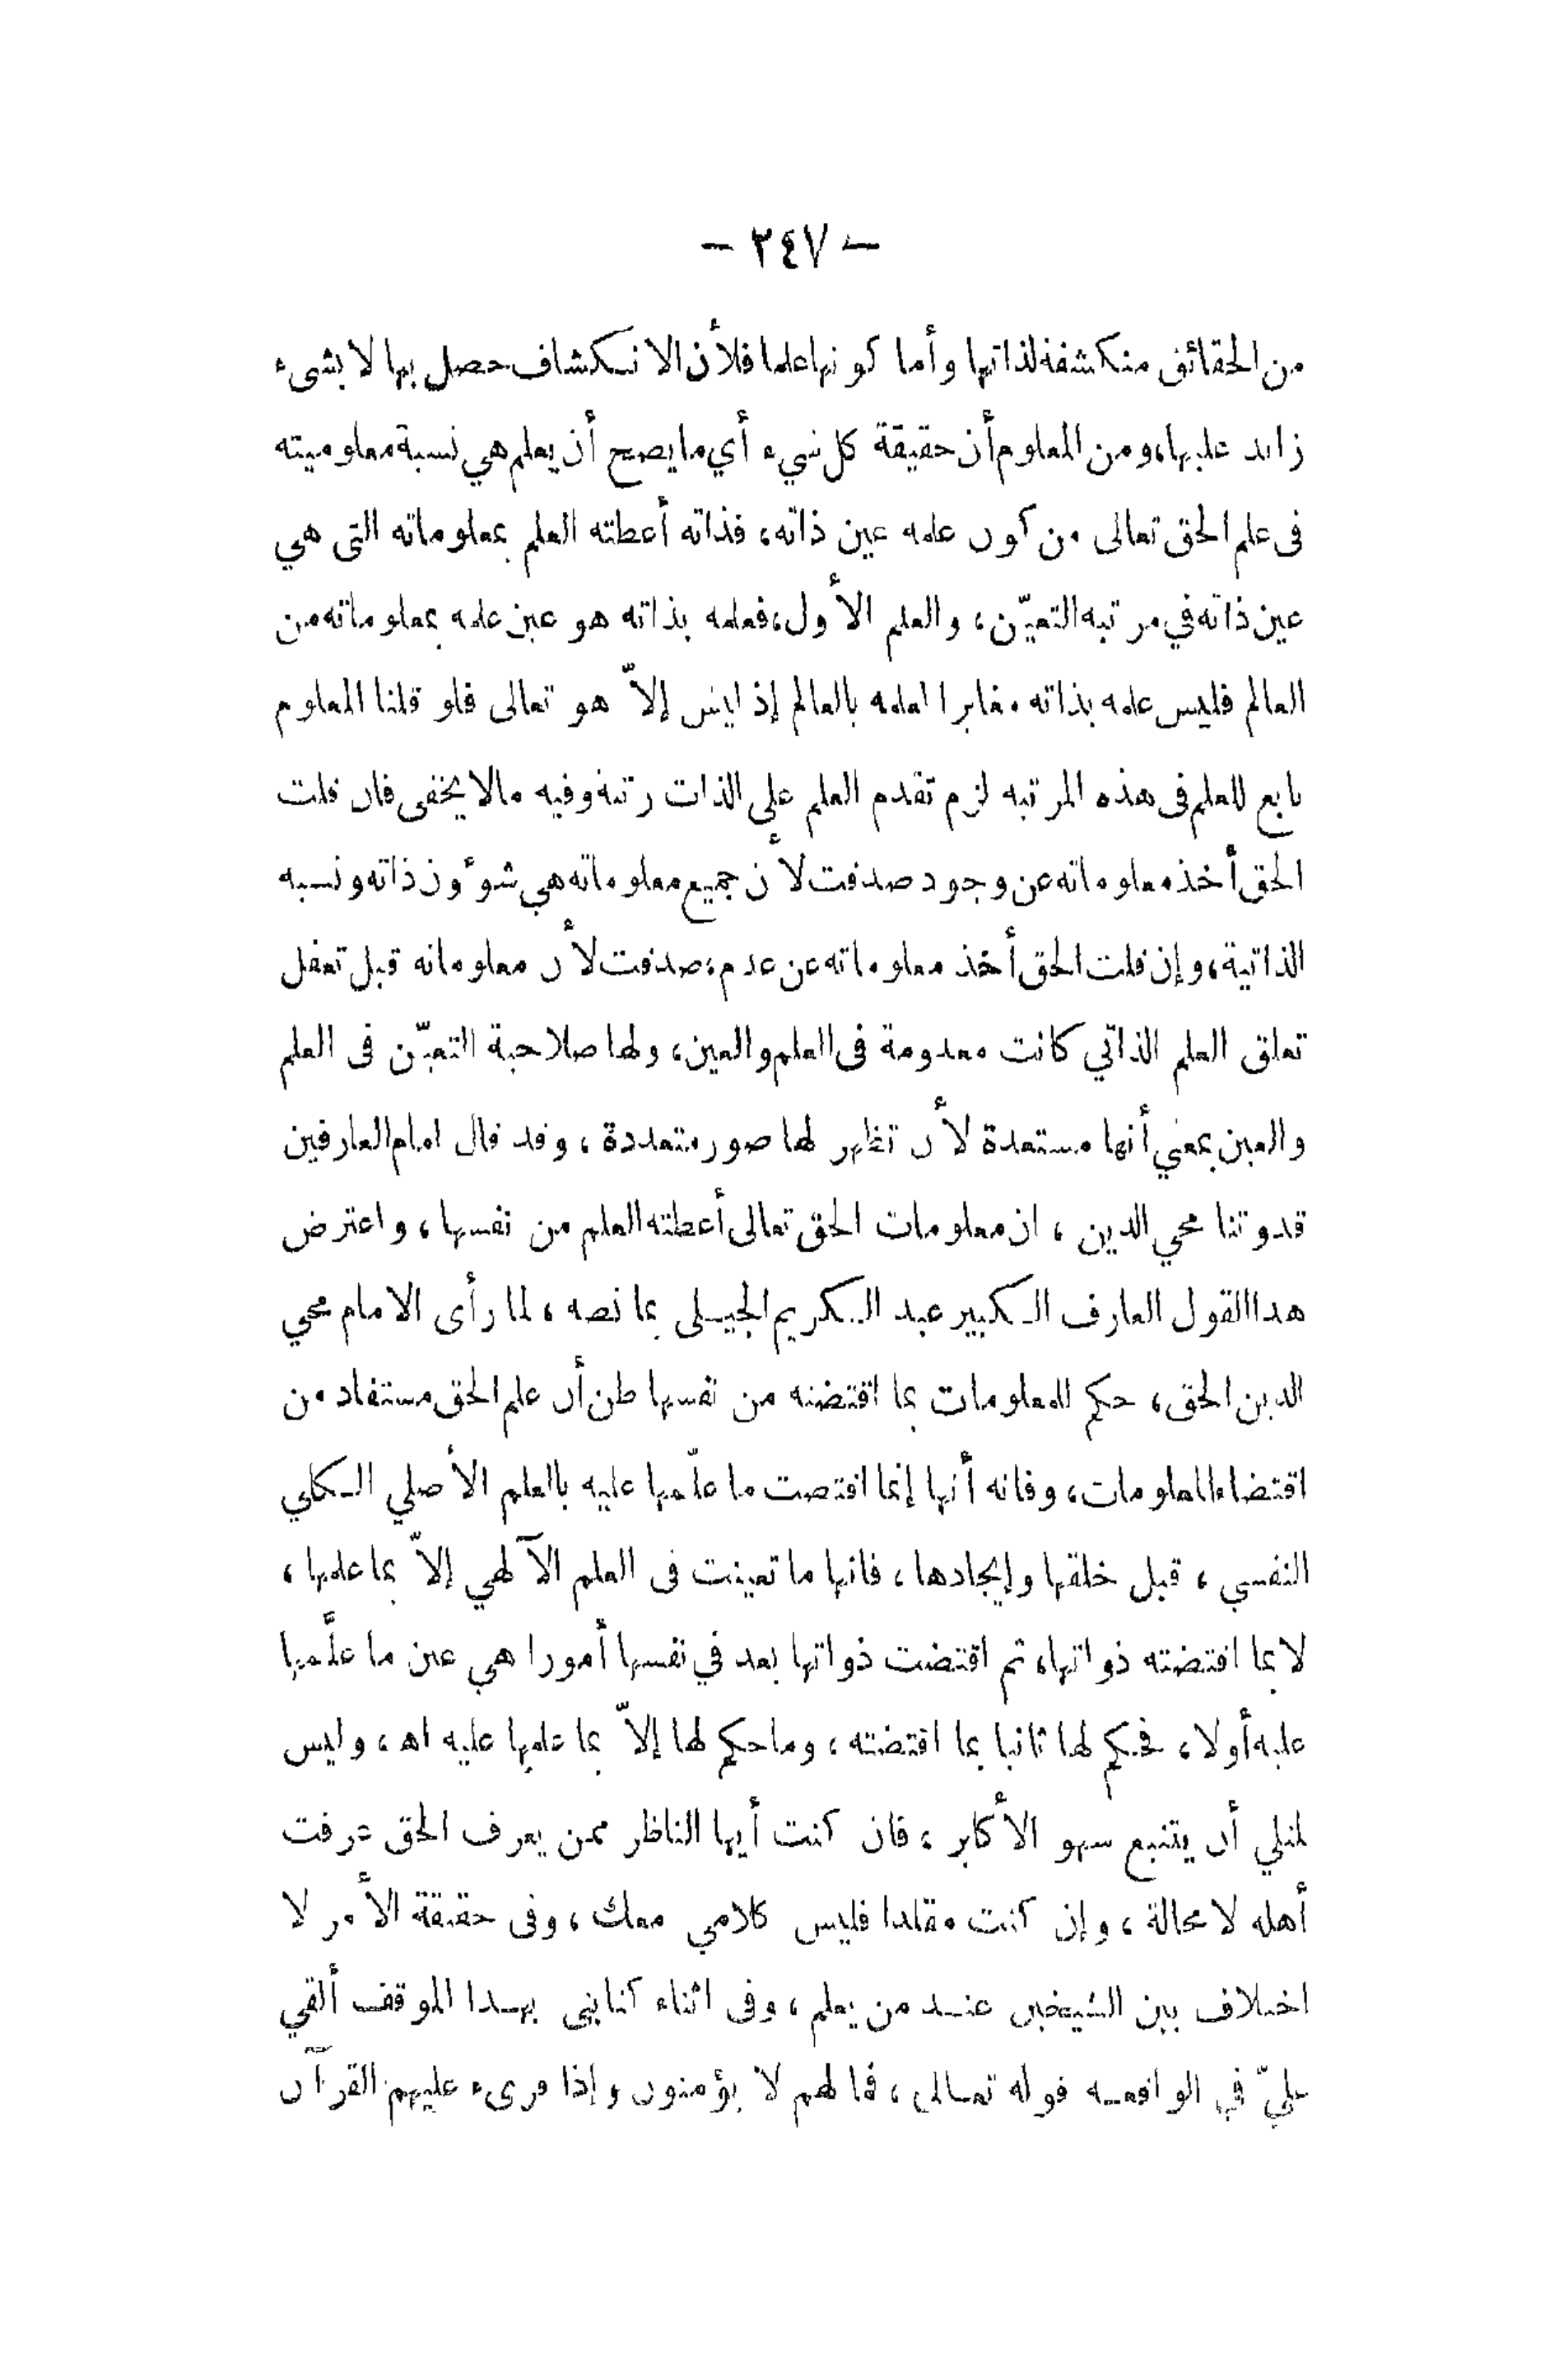 — ٢٤٧ —
من الحقائق منكشفة لذاتها وأما كونها علما فلأن الانكشاف حصل بها لا بشىء
زائد عليها، ومن المعلوم أن حقيقة كل شيء أي ما يصح أن يعلم هي نسبة معلوميته
فى علم الحق تعالى من كون علمه عين ذاته، فذاته أعطته العلم بمعلوماته التى هي
عين ذاته في مرتبه التعيّن، والعلم الأول، فعلمه بذاته هو عين علمه بمعلوماته من
العالم فليس علمه بذاته مغايرا لعلمه بالعالم إذ ليس إلاّ هو تعالى فلو قلنا المعلوم
تابع للعلم فى هذه المرتبه لزم تقدم العلم على الذات رتبة وفيه مالا يخفى فان قلت
الحق أخذ معلوماته عن وجود صدقت لأن جميع معلوماته هي شؤون ذاته ونسبه
الذاتية، وإن قلت الحق أخذ معلوماته عن عدم، صدقت لأن معلوماته قبل تعقل
تعلق العلم الذاتي كانت معدومة فى العلم والعين، ولها صلاحية التعيّن فى العلم
والعين بمعني أنها مستعدة لأن تظهر لها صور متعددة، وقد قال امام العارفين
قدوتنا محي الدين، ان معلومات الحق تعالى أعطته العلم من نفسها، واعترض
هدا القول العارف الكبير عبد الكريم الجيلى بما نصه، لما رأى الامام محي
الدين الحق، حكم للمعلومات بما اقتضته من نفسها ظن أن علم الحق مستفاد من
اقتضاء المعلومات، وفاته أنها إنما اقتضت ما علّمها عليه بالعلم الأصلي الكلي
النفسي، قبل خلقها وإيجادها، فانها ما تعينت فى العلم الآلهي إلاّ بما علمها،
لا بما اقتضته ذواتها، ثم اقتضت ذواتها بعد في نفسها أمورا هي عين ما علّمها
عليه أولا، فحكم لها ثانيا بما اقتضته، وما حكم لها إلاّ بما علمها عليه اه، وليس
لمثلي أن يتتبع سهو الأكابر، فان كنت أيها الناظر ممن يعرف الحق عرفت
أهله لا محالة، وإن كنت مقلدا فليس كلامي معك، وفى حقيقة الأمر لا
اختلاف بين الشيخين عند من يعلم، وفى اثناء كتابتى بهدا الموقف ألقي
عليّ في الواقعه قوله تعالى، فما لهم لا يؤمنون وإذا قرىء عليهم القرآن